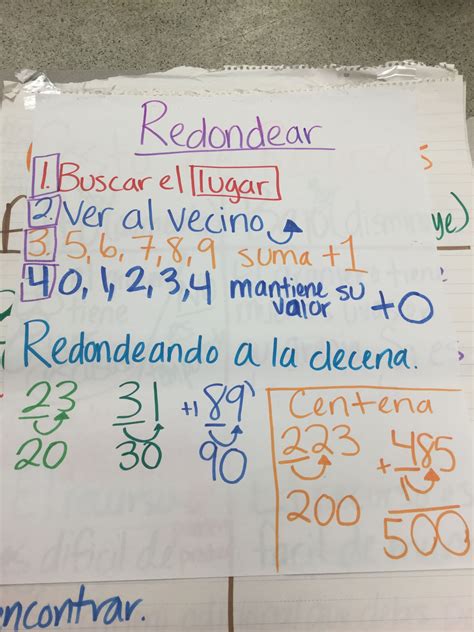 Redondear
1. Buscar el lugar
2. Ver al vecino
3. 5, 6, 7, 8, 9 suma +1
4. 0, 1, 2, 3, 4 mantiene su valor +0
Redondeando a la decena.
23 31 +1 89
20 30 90
Centena
223 + 485
1
200 500
s
ye)
encontrar.